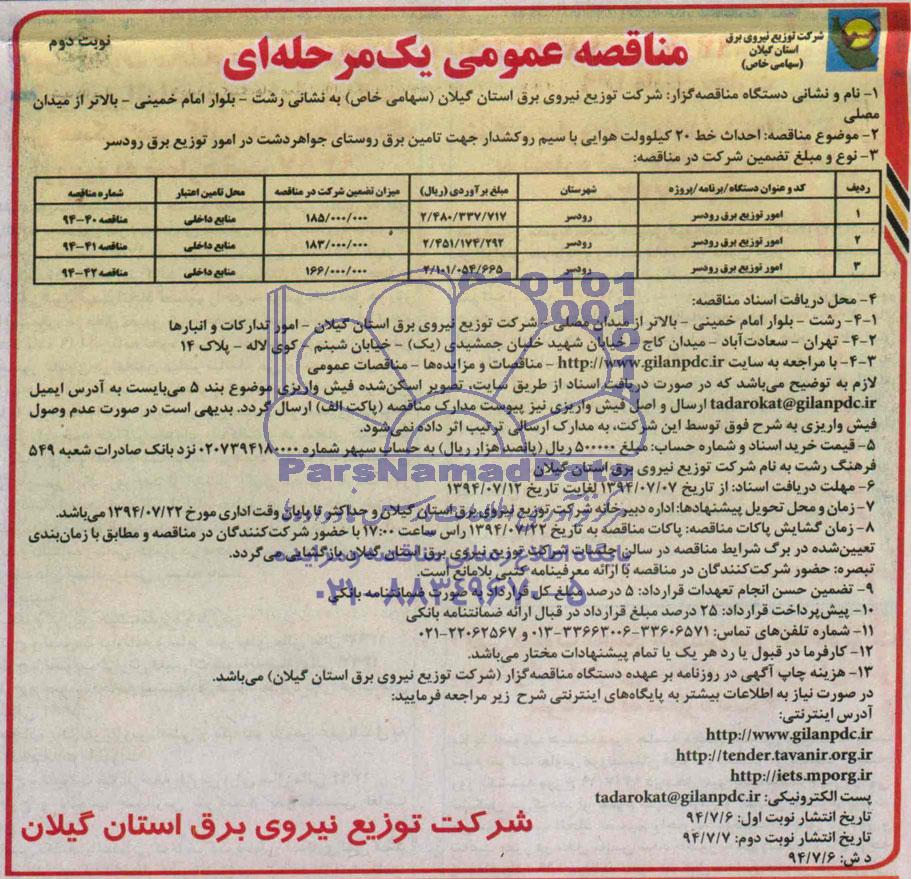 شرکت توزیع نیروی برق
استان گیلان
(سهامی خاص)
نوبت دوم
مناقصه عمومی یک‌مرحله‌ای
۱- نام و نشانی دستگاه مناقصه‌گزار: شرکت توزیع نیروی برق استان گیلان (سهامی خاص) به نشانی رشت - بلوار امام خمینی - بالاتر از میدان
مصلی
۲- موضوع مناقصه: احداث خط ۲۰ کیلوولت هوایی با سیم روکشدار جهت تامین برق روستای جواهردشت در امور توزیع برق رودسر
۳- نوع و مبلغ تضمین شرکت در مناقصه:
ردیف کد و عنوان دستگاه/برنامه/پروژه شهرستان مبلغ برآوردی (ریال) میزان تضمین شرکت در مناقصه محل تامین اعتبار شماره مناقصه
۱ امور توزیع برق رودسر رودسر ۲/۴۸۰/۳۳۷/۷۱۷ ۱۸۵/۰۰۰/۰۰۰ منابع داخلی مناقصه ۴۰-۹۴
۲ امور توزیع برق رودسر رودسر ۲/۴۵۱/۱۷۴/۲۹۲ ۱۸۳/۰۰۰/۰۰۰ منابع داخلی مناقصه ۴۱-۹۴
۳ امور توزیع برق رودسر رودسر ۲/۱۰۱/۰۵۴/۶۶۵ ۱۶۶/۰۰۰/۰۰۰ منابع داخلی مناقصه ۴۲-۹۴
۴- محل دریافت اسناد مناقصه:
۴-۱- رشت - بلوار امام خمینی - بالاتر از میدان مصلی - شرکت توزیع نیروی برق استان گیلان - امور تدارکات و انبارها
۴-۲- تهران - سعادت‌آباد - میدان کاج - خیابان شهید خلیان جمشیدی (یک) - خیابان شبنم - کوی لاله - پلاک ۱۴
۴-۳- با مراجعه به سایت http://www.gilanpdc.ir - مناقصات و مزایده‌ها - مناقصات عمومی
لازم به توضیح می‌باشد که در صورت دریافت اسناد از طریق سایت، تصویر اسکن‌شده فیش واریزی موضوع بند ۵ می‌بایست به آدرس ایمیل
tadarokat@gilanpdc.ir ارسال و اصل فیش واریزی نیز پیوست مدارک مناقصه (پاکت الف) ارسال گردد. بدیهی است در صورت عدم وصول
فیش واریزی به شرح فوق توسط این شرکت، به مدارک ارسالی ترتیب اثر داده نمی‌شود.
۵- قیمت خرید اسناد و شماره حساب: مبلغ ۵۰۰۰۰۰ ریال (پانصد هزار ریال) به حساب سپهر شماره ۰۲۰۷۳۹۴۱۸۰۰۰۰ نزد بانک صادرات شعبه ۵۴۹
فرهنگ رشت به نام شرکت توزیع نیروی برق استان گیلان
۶- مهلت دریافت اسناد: از تاریخ ۱۳۹۴/۰۷/۰۷ لغایت تاریخ ۱۳۹۴/۰۷/۱۲
۷- زمان و محل تحویل پیشنهادها: اداره دبیرخانه شرکت توزیع نیروی برق استان گیلان و حداکثر تا پایان وقت اداری مورخ ۱۳۹۴/۰۷/۲۲ می‌باشد.
۸- زمان گشایش پاکات مناقصه: پاکات مناقصه به تاریخ ۱۳۹۴/۰۷/۲۲ راس ساعت ۱۷:۰۰ با حضور شرکت‌کنندگان در مناقصه و مطابق با زمان‌بندی
تعیین‌شده در برگ شرایط مناقصه در سالن جلسات شرکت توزیع نیروی برق استان گیلان بازگشایی می‌گردد.
تبصره: حضور شرکت‌کنندگان در مناقصه با ارائه معرفینامه کتبی بلامانع است.
۹- تضمین حسن انجام تعهدات قرارداد: ۵ درصد مبلغ کل قرارداد به صورت ضمانتنامه بانکی
۱۰- پیش‌پرداخت قرارداد: ۲۵ درصد مبلغ قرارداد در قبال ارائه ضمانتنامه بانکی
۱۱- شماره تلفن‌های تماس: ۳۳۶۰۶۵۷۱-۳۳۶۶۳۰۰۶-۰۱۳ و ۲۲۰۶۲۵۶۷-۰۲۱
۱۲- کارفرما در قبول یا رد هر یک یا تمام پیشنهادات مختار می‌باشد.
۱۳- هزینه چاپ آگهی در روزنامه بر عهده دستگاه مناقصه‌گزار (شرکت توزیع نیروی برق استان گیلان) می‌باشد.
در صورت نیاز به اطلاعات بیشتر به پایگاه‌های اینترنتی شرح زیر مراجعه فرمایید:
آدرس اینترنتی:
http://www.gilanpdc.ir
http://tender.tavanir.org.ir
http://iets.mporg.ir
پست الکترونیکی: tadarokat@gilanpdc.ir
تاریخ انتشار نوبت اول: ۹۴/۷/۶
تاریخ انتشار نوبت دوم: ۹۴/۷/۷
د ش: ۹۴/۷/۶
شرکت توزیع نیروی برق استان گیلان
ParsNamadData
۰۲۱-۸۸۳۴۹۶۷۰-۵